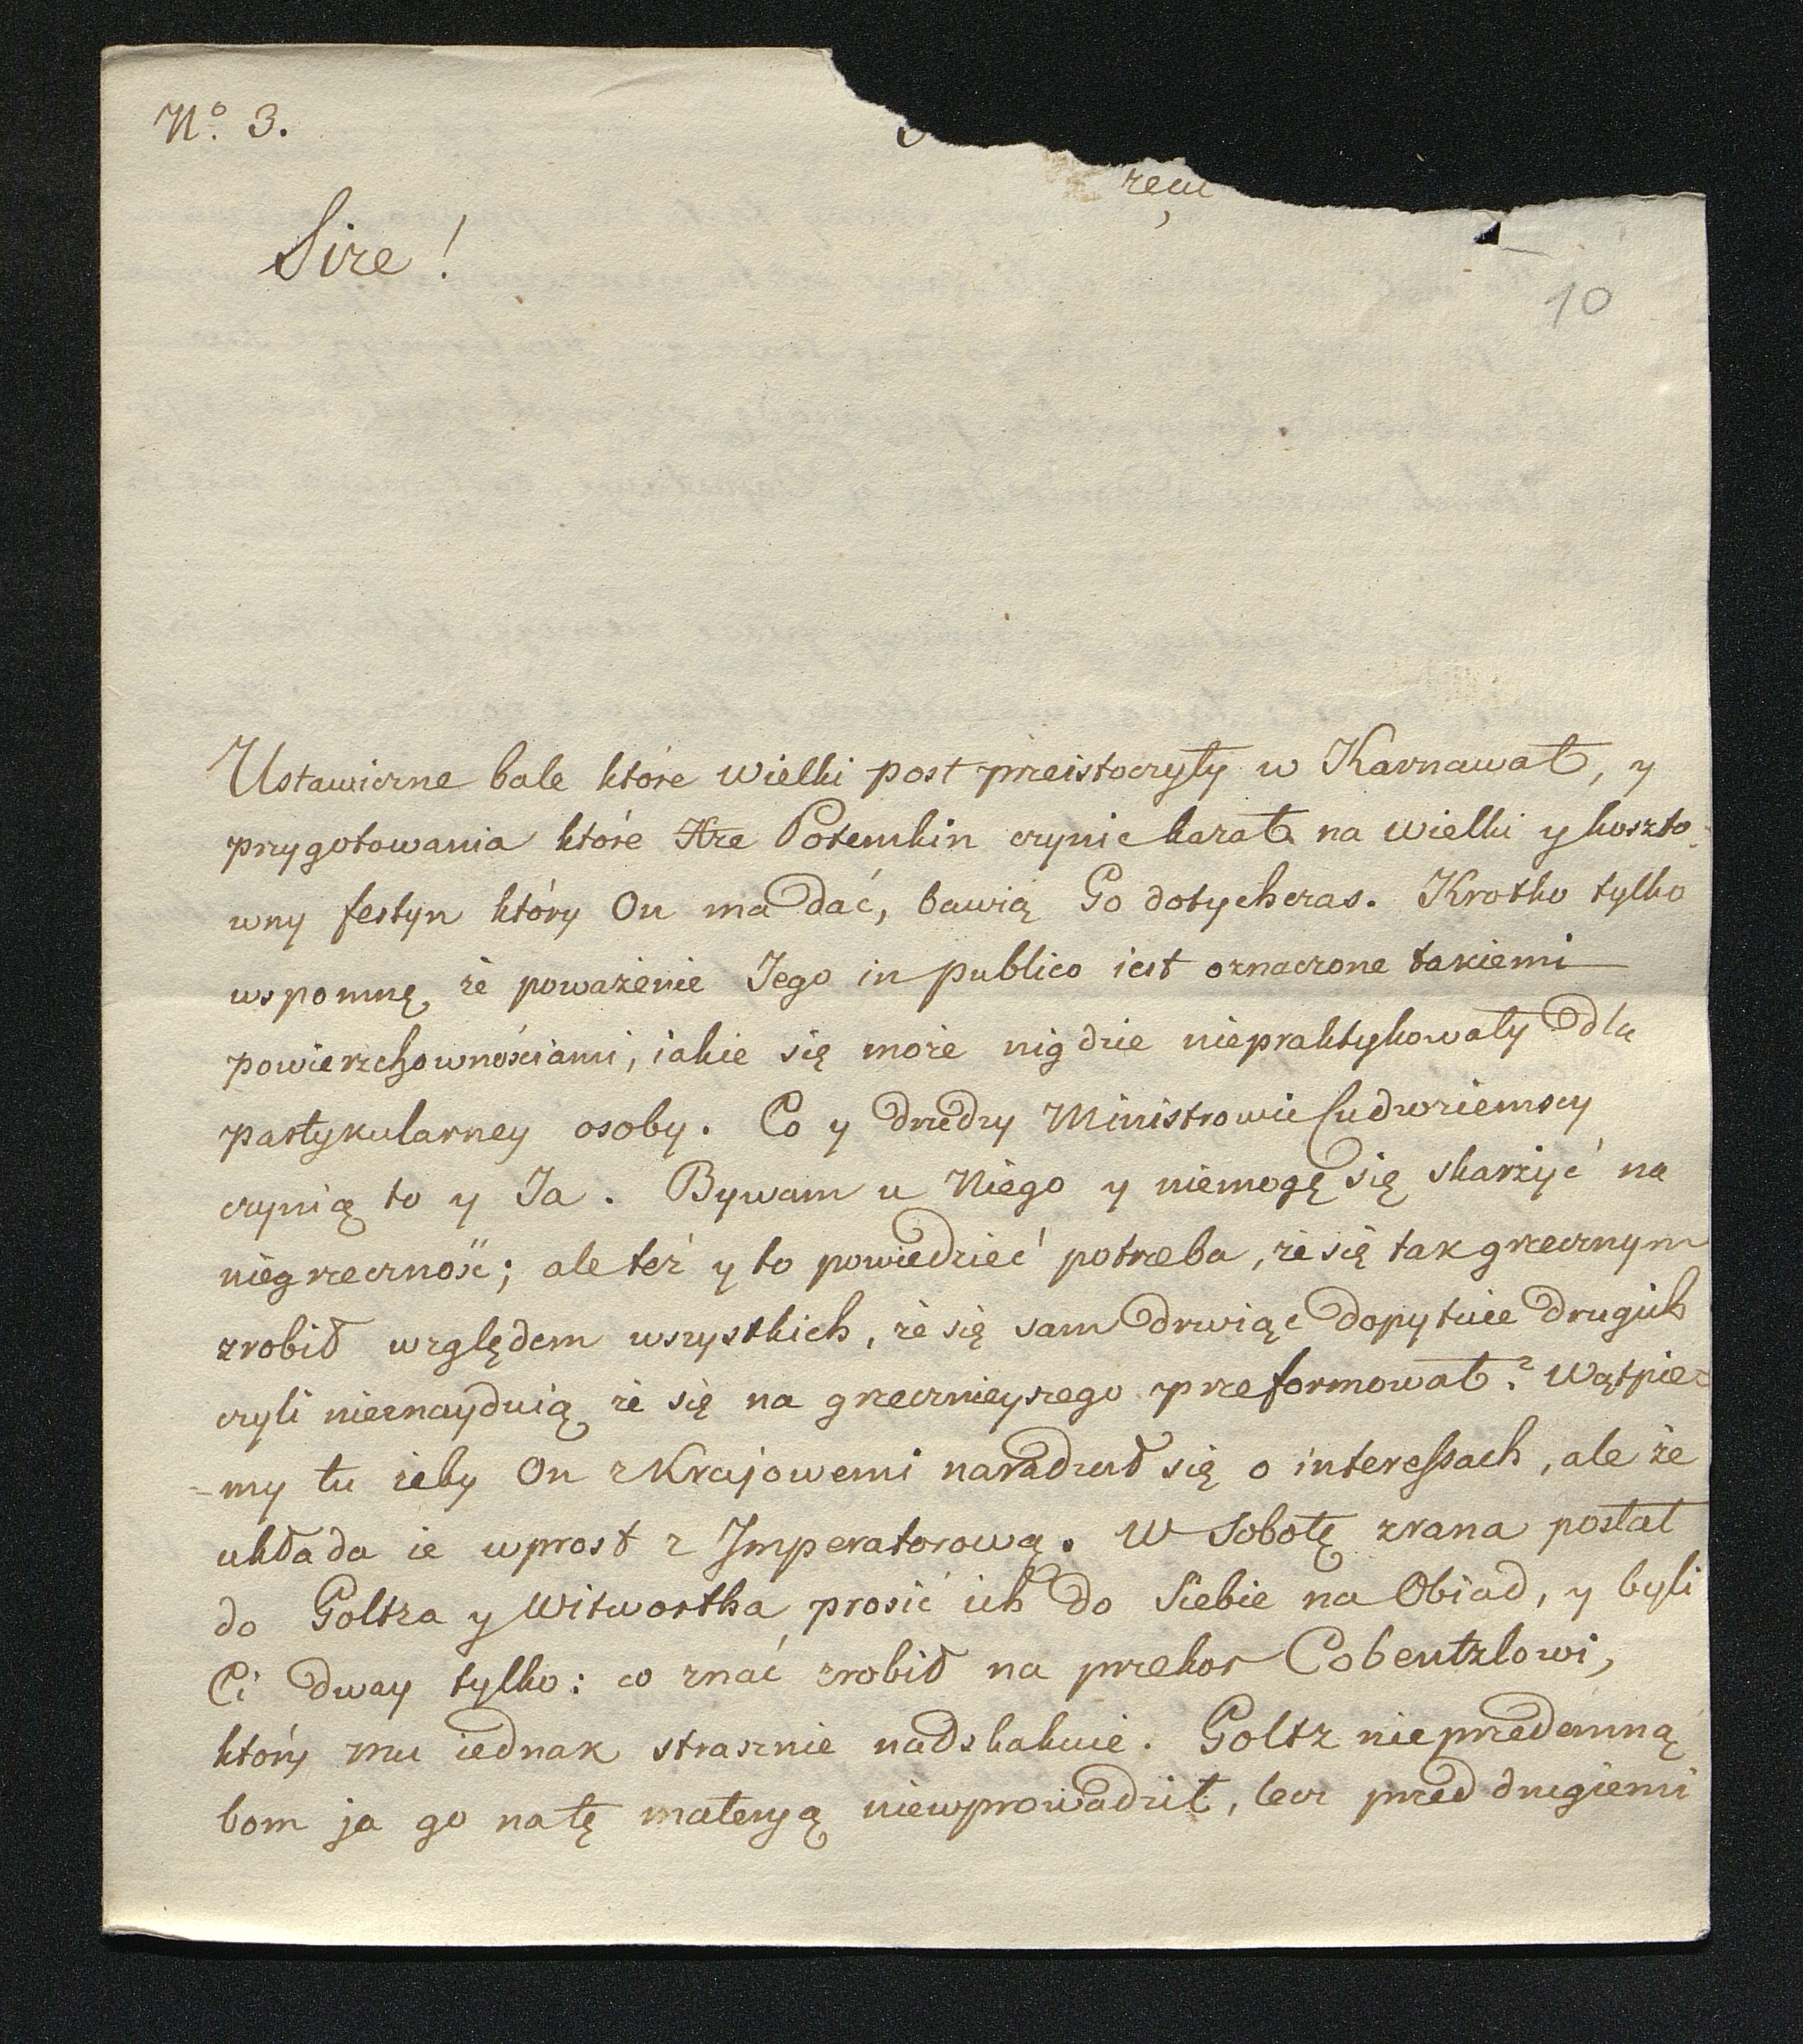 No. 3.
Sire!
10
Ustawiczne bale które wielki post przeistoczyły w Karnawał, y
przygotowania które Xże Potemkin czynić kazał na wielki y koszto-
wny festyn który On ma dać, bawią Go dotychczas. Krotko tylko
wspomnę, że poważenie Jego in publico iest oznaczone takiemi
powierzchownościami, iakie się może nigdzie niepraktykowały dla
partykularney osoby. Co y drudzy Ministrowie Cudzoziemscy
czynią to y Ja. Bywam u Niego y niemogę się skarżyć na
niegrzeczność; ale też y to powiedzieć potrzeba, że się tak grzecznym
zrobił względem wszystkich, że się sam drwiąc dopytuie drugich
czyli nieznayduią że się na grzecznieyszego przeformował? Wątpie-
-my tu żeby On z Krajowemi naradzał się o interessach, ale że
układa ie wprost z Imperatorową. W Sobotę zrana posłał
do Goltza y Witwortha prosić ich do Siebie na Obiad, y byli
Ci dway tylko: co znać zrobił na przekor Cobentzlowi,
który mu iednak strasznie nadskakuie. Goltz nieprzedemną
bom ja go na tę materyą niewprowadził, lecz przed drugiemi